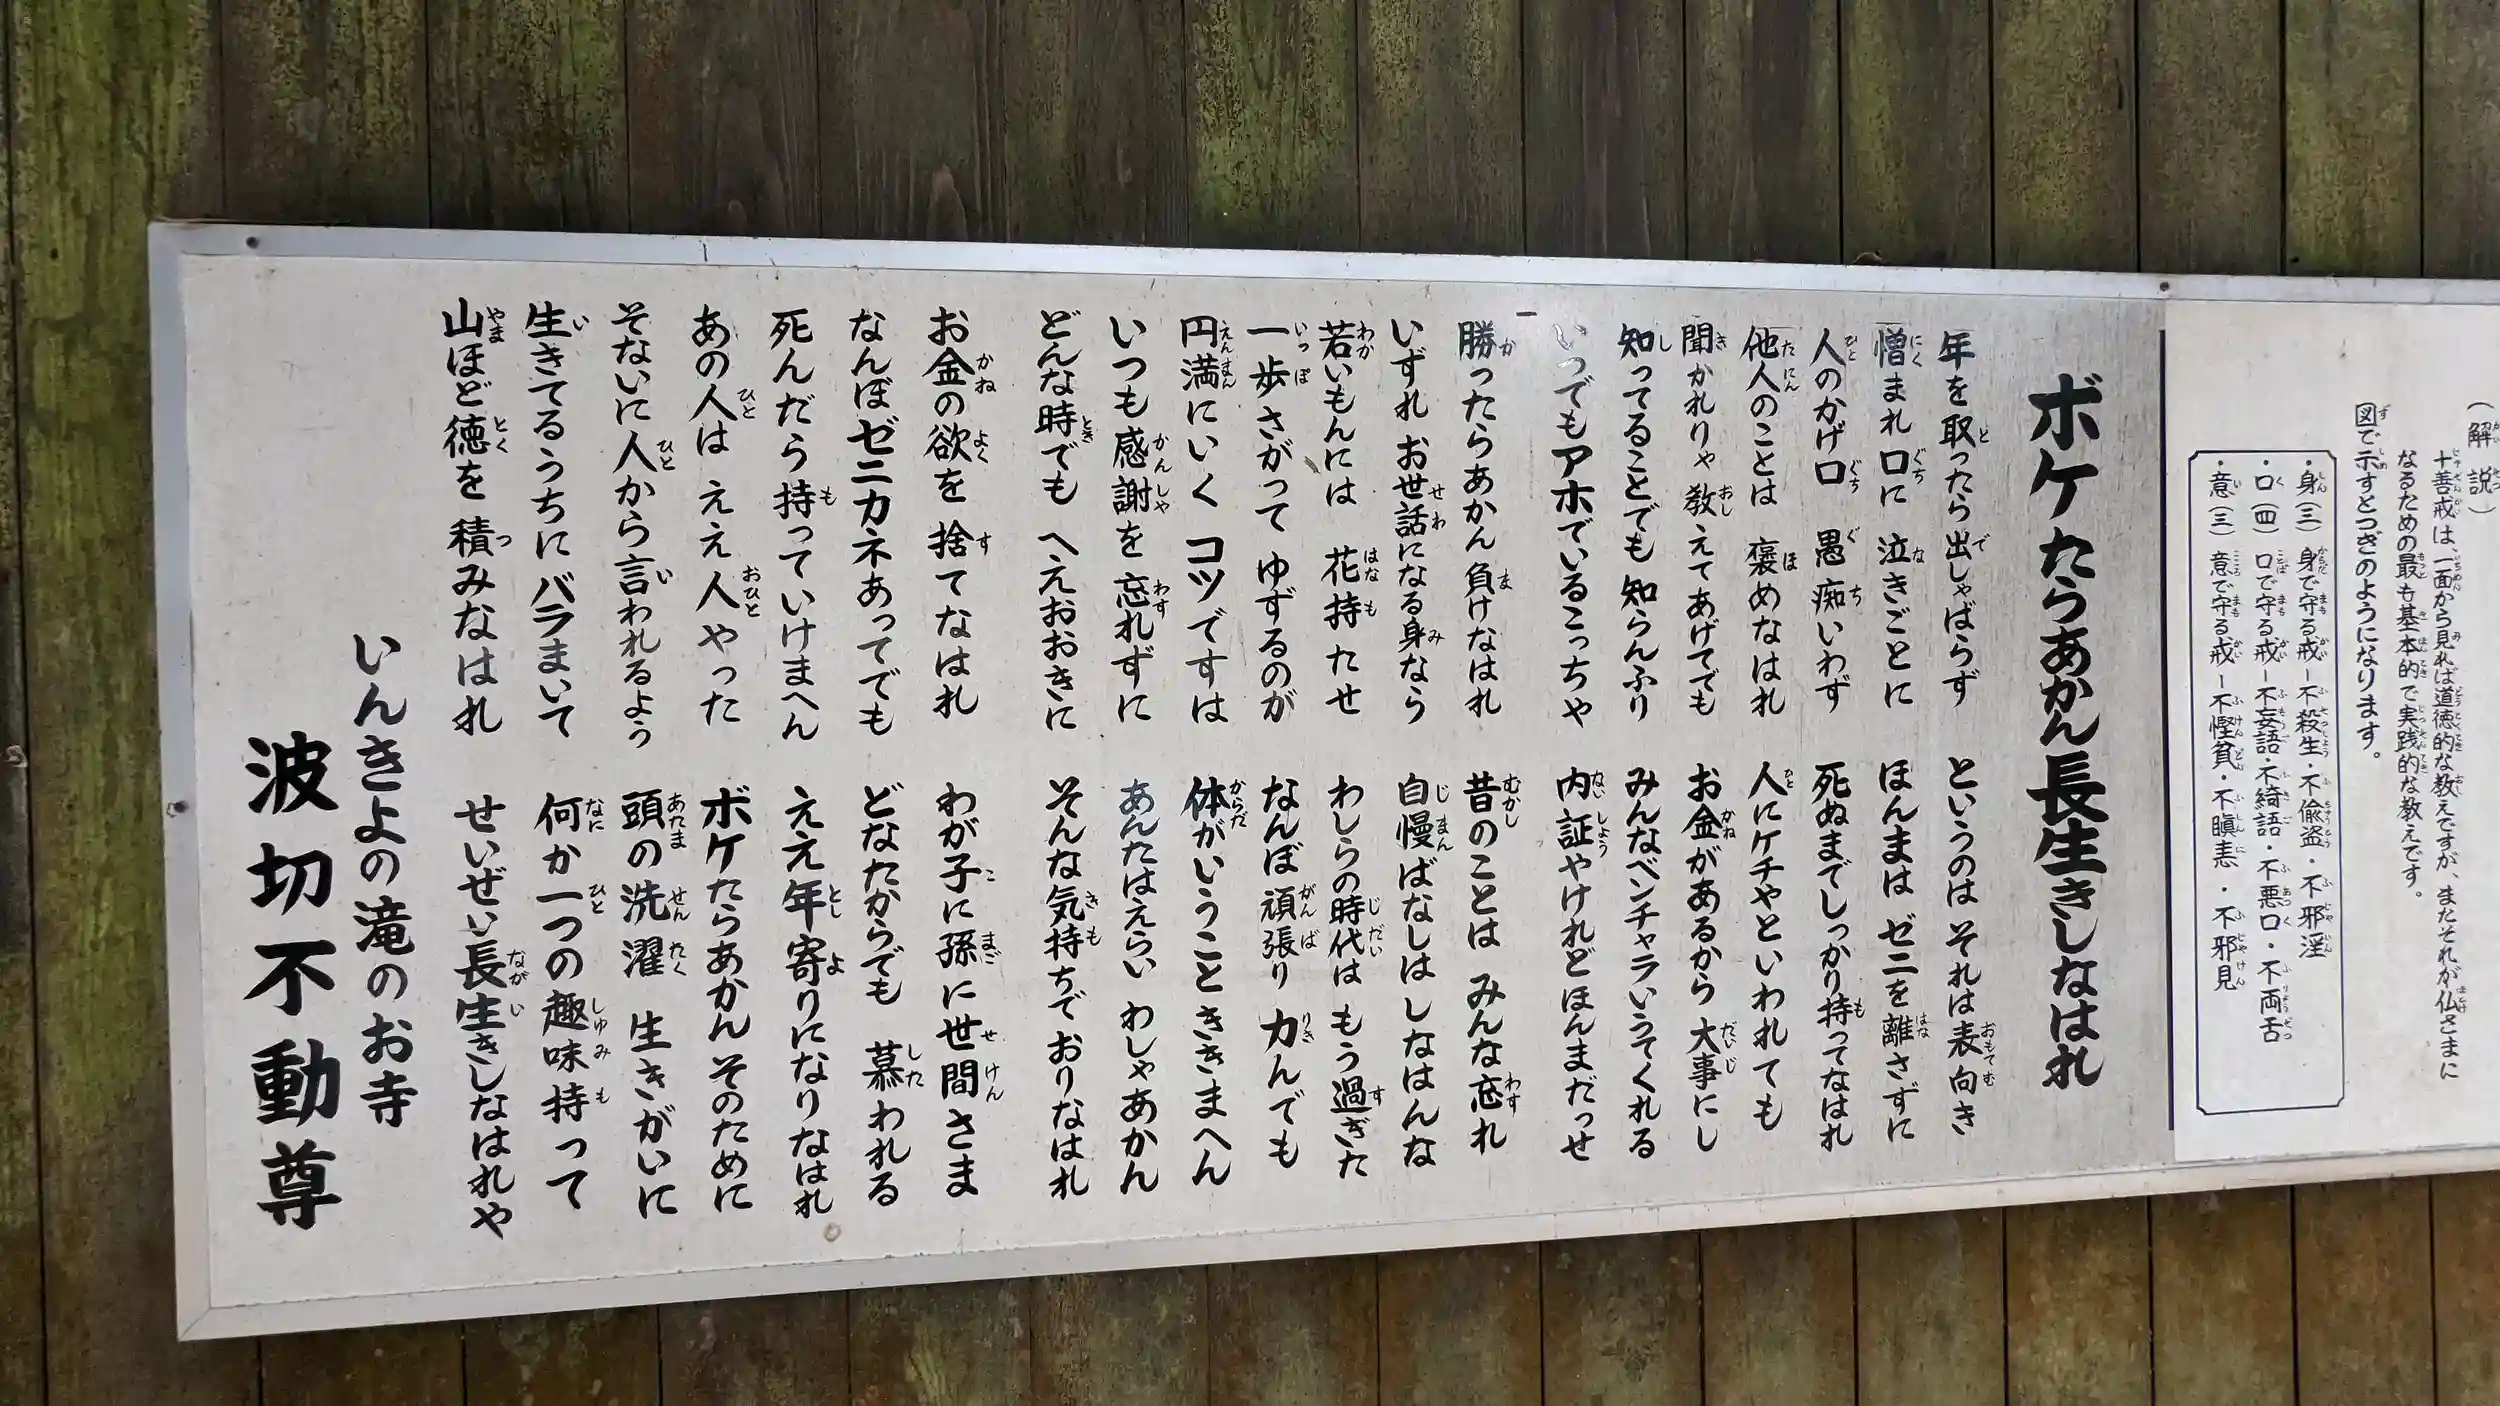 (解説)
十善戒は、一面から見れば道徳的な教えですが、またそれが仏さまに
なるための最も基本的で実践的な教えです。
図で示すとつぎのようになります。
・身(三) 身で守る戒―不殺生・不偸盗・不邪淫
・口(四) 口で守る戒―不妄語・不綺語・不悪口・不両舌
・意(三) 意で守る戒―不慳貪・不瞋恚・不邪見
ボケたらあかん長生きしなはれ
年を取ったら出しゃばらず
憎まれ口に 泣きごとに
人のかげ口 愚痴いわず
他人のことは 褒めなはれ
聞かれりゃ 教えてあげてでも
知ってることでも 知らんふり
いつでもアホでいるこっちゃ
勝ったらあかん 負けなはれ
いずれ お世話になる身なら
若いもんには 花持たせ
一歩さがって ゆずるのが
円満にいく コツですは
いつも感謝を 忘れずに
どんな時でも へえおおきに
お金の欲を 捨てなはれ
なんぼゼニカネあってでも
死んだら持っていけまへん
あの人は ええ人やった
そないに人から言われるよう
生きてるうちにバラまいて
山ほど徳を 積みなはれ
というのは それは表向き
ほんまは ゼニを離さずに
死ぬまでしっかり持ってなはれ
人にケチやといわれても
お金があるから 大事にし
みんなベンチャラいうてくれる
内証やけれどほんまだっせ
昔のことは みんな忘れ
自慢ばなしは しなはんな
わしらの時代は もう過ぎた
なんぼ頑張り 力んでも
体がいうこときき​まへん
あんたはえらい わしゃあかん
そんな気持ちで おりなはれ
わが子に孫に世間さま
どなたからでも 慕われる
ええ年寄りになりなはれ
ボケたらあかん そのために
頭の洗濯 生きがいに
何か一つの趣味持って
せいぜい長生きしなはれや
いんきよの滝のお寺
波切不動尊